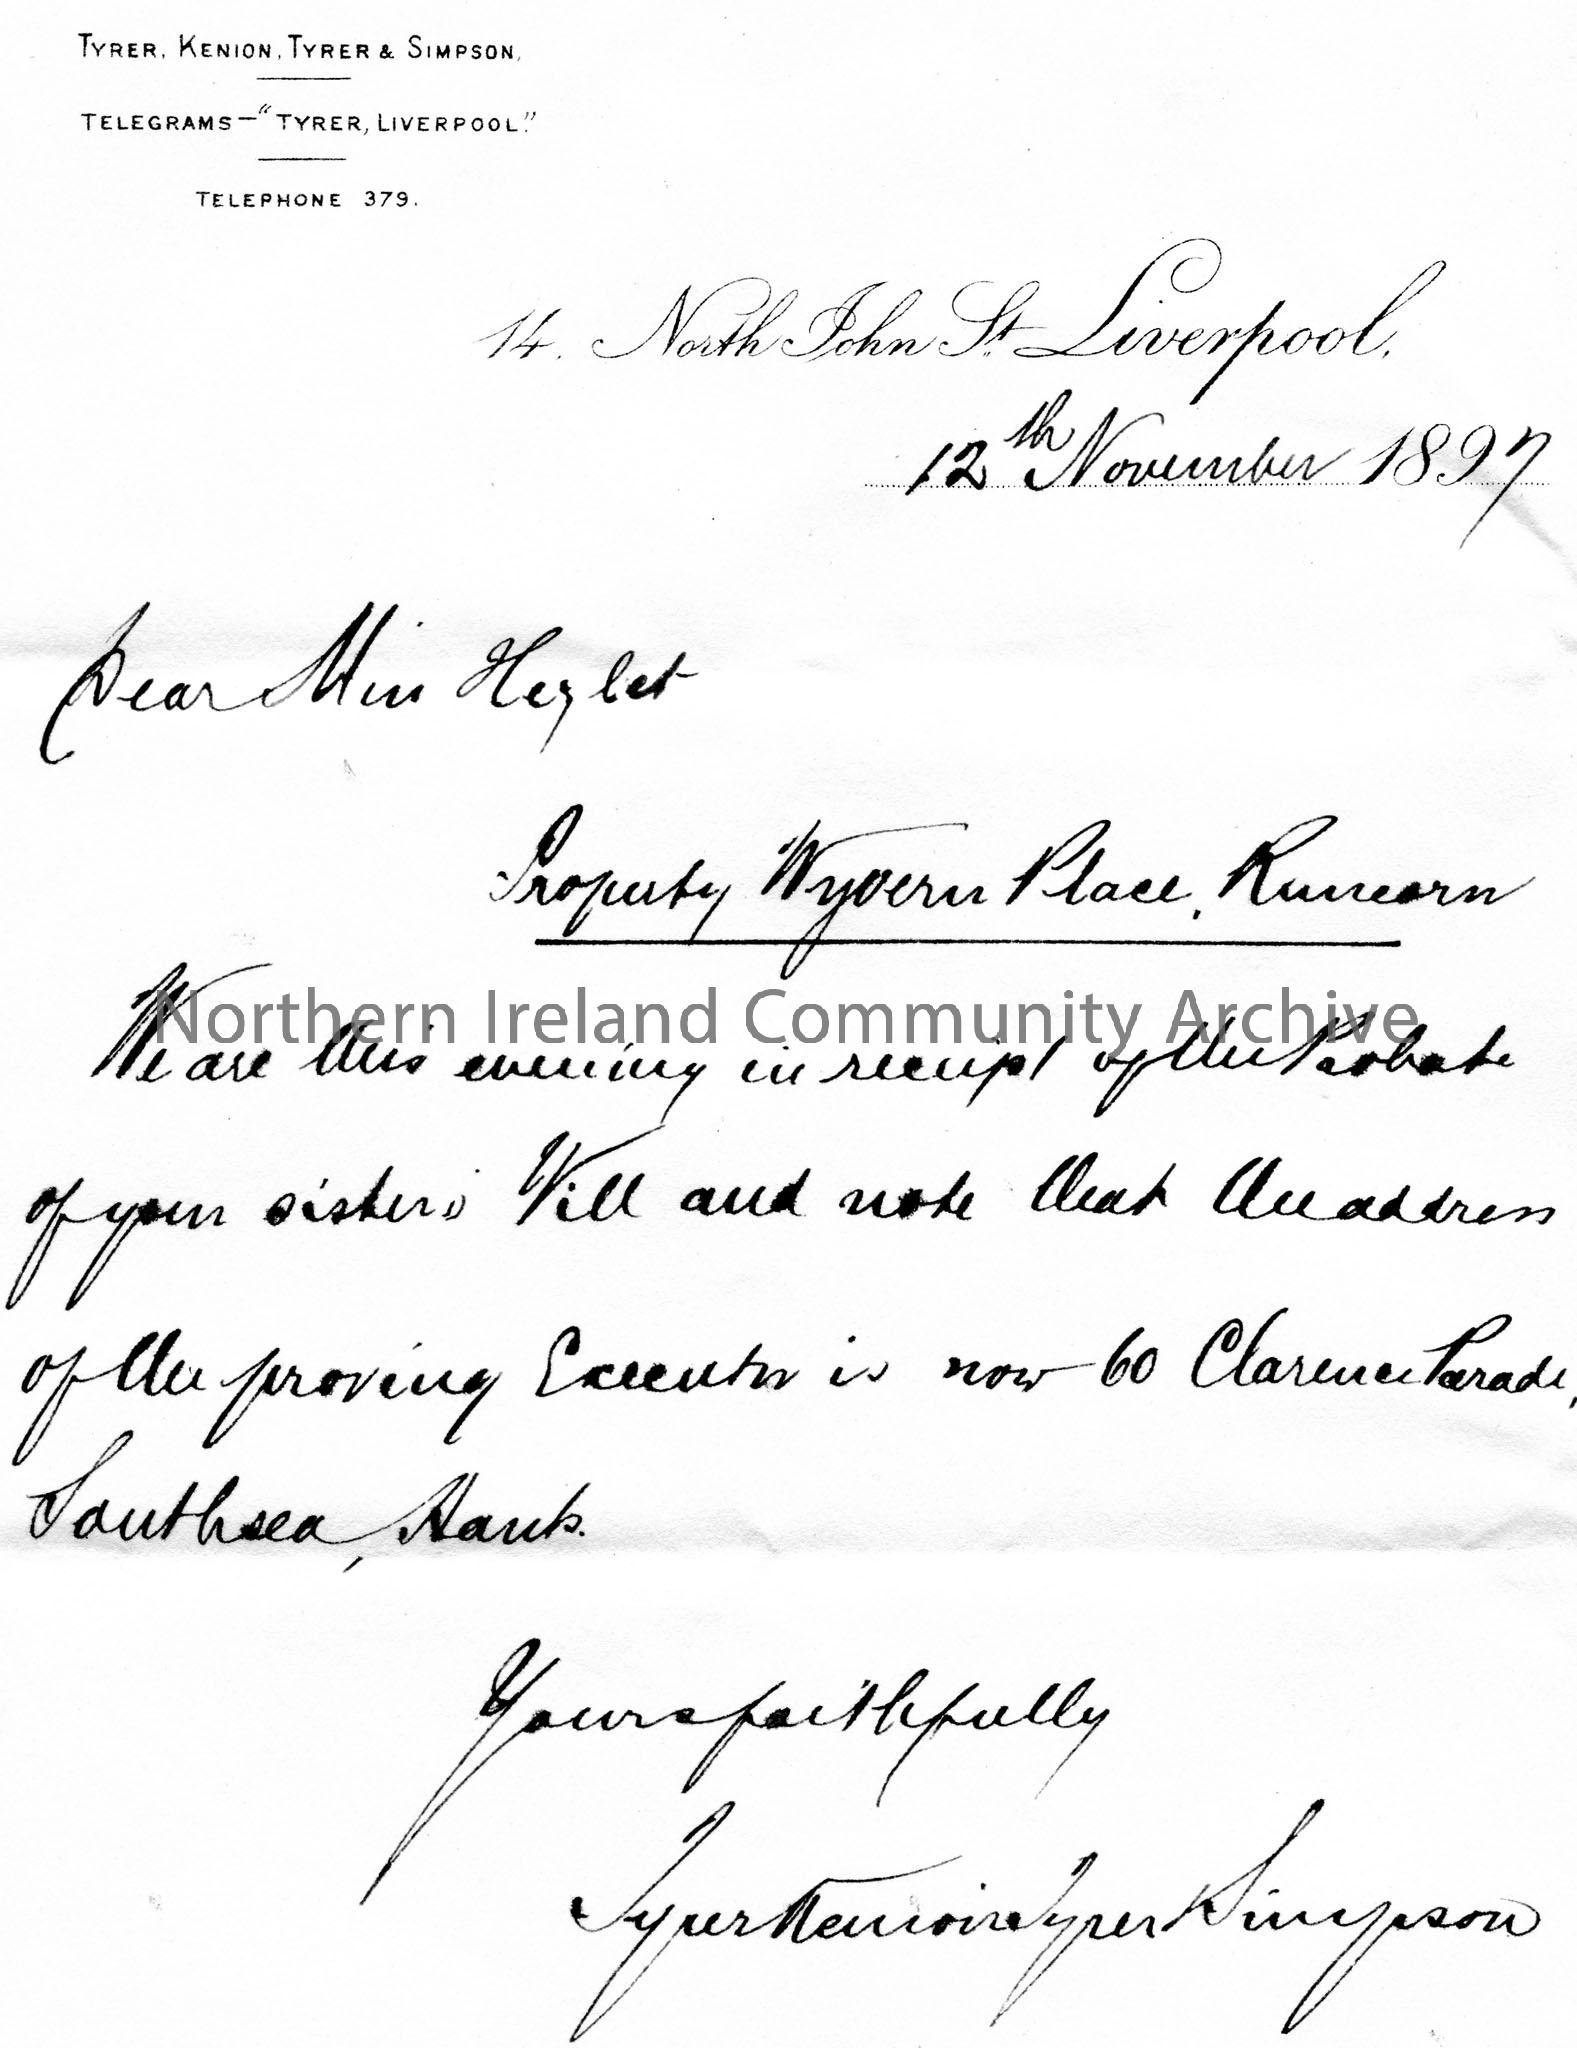 TYRER, KENION, TYRER & SIMPSON,
TELEGRAMS—"TYRER, LIVERPOOL."
TELEPHONE 379.
14. North John St. Liverpool.
12th November 1897
Dear Miss Hezlet
Property Wyvern Place, Runcorn
Northern Ireland Community Archive
We are this evening in receipt of the Probate
of your sister's Will and note that the address
of the proving Executor is now 60 Clarence Parade,
Southsea, Hants.
Yours faithfully
Tyrer Kenion Tyrer & Simpson